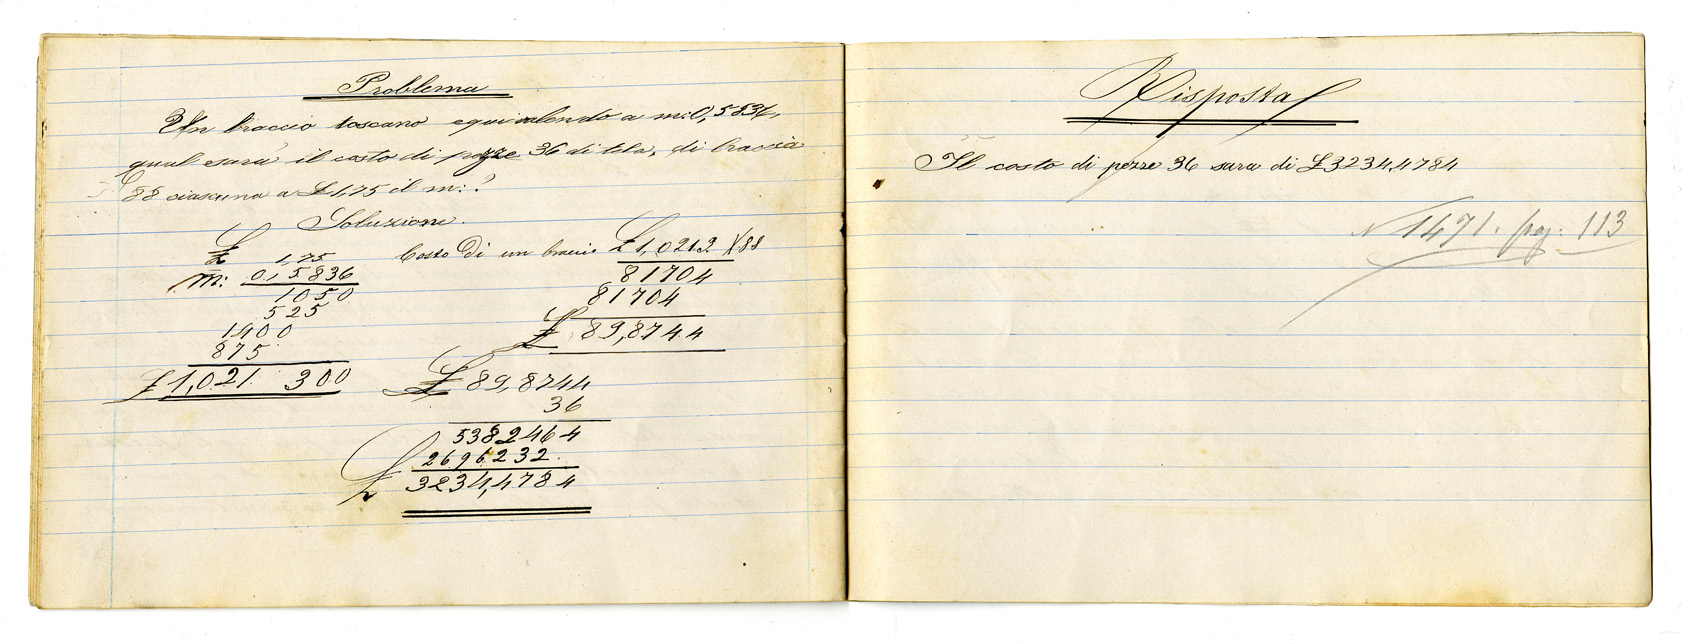 Problema
Un braccio toscano equivalendo a m: 0,5836,
qual sarà il costo di pezze 36 di tela, di braccia
88 ciascuna a £ 1,75 il m: ?
Soluzione
£ 1,75
m: 0,5836
1050
525
1400
875
£ 1,021 300
Costo di un braccio £ 1,0213 X 88
81704
81704
£ 89,8744
£ 89,8744
36
5392464
2696232
£ 3234,4784
Risposta
Il costo di pezze 36 sara di £ 3234,4784
N 1471. pag. 113